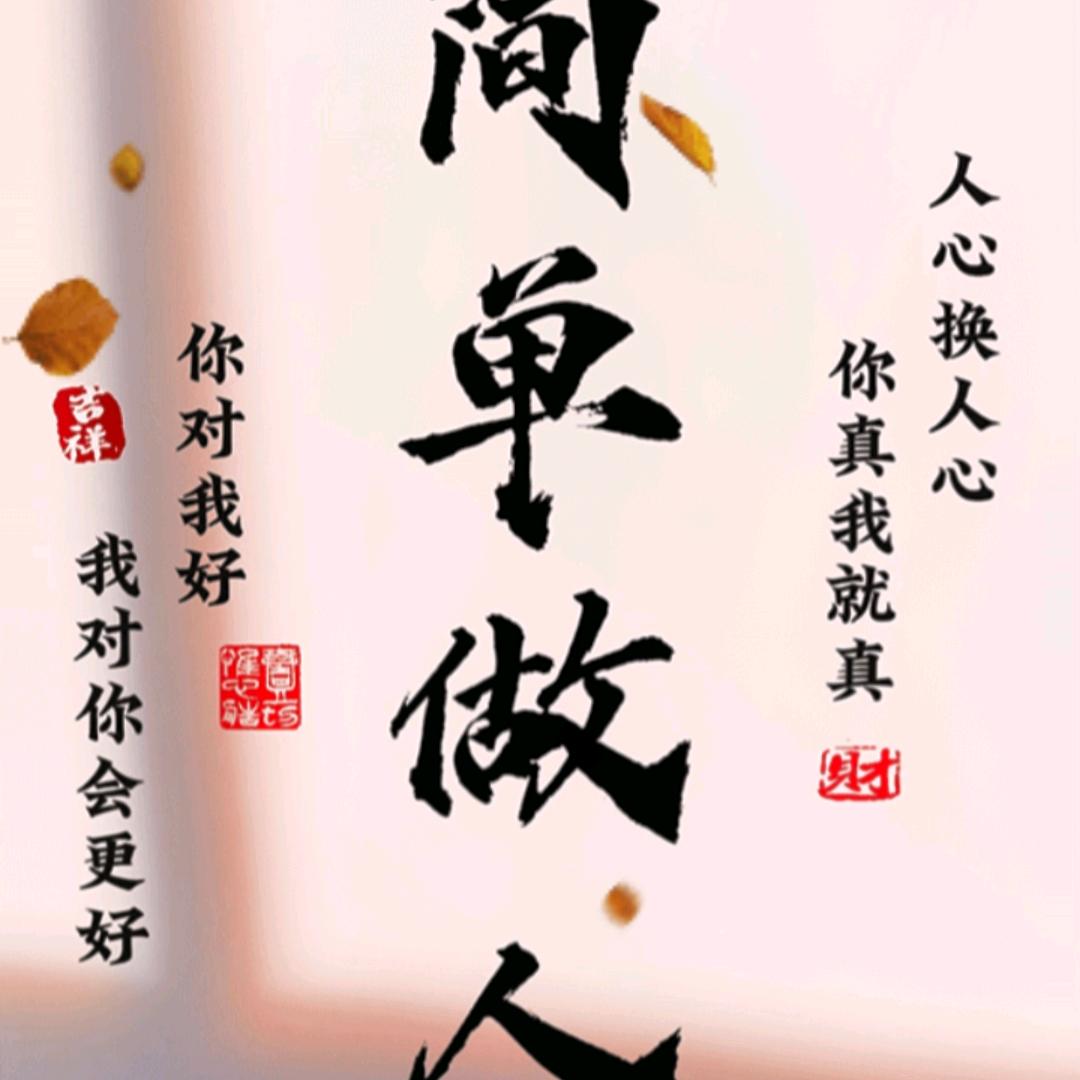 人心换人心
你真我就真
財
简单做人
你对我好
吉祥
我对你会更好